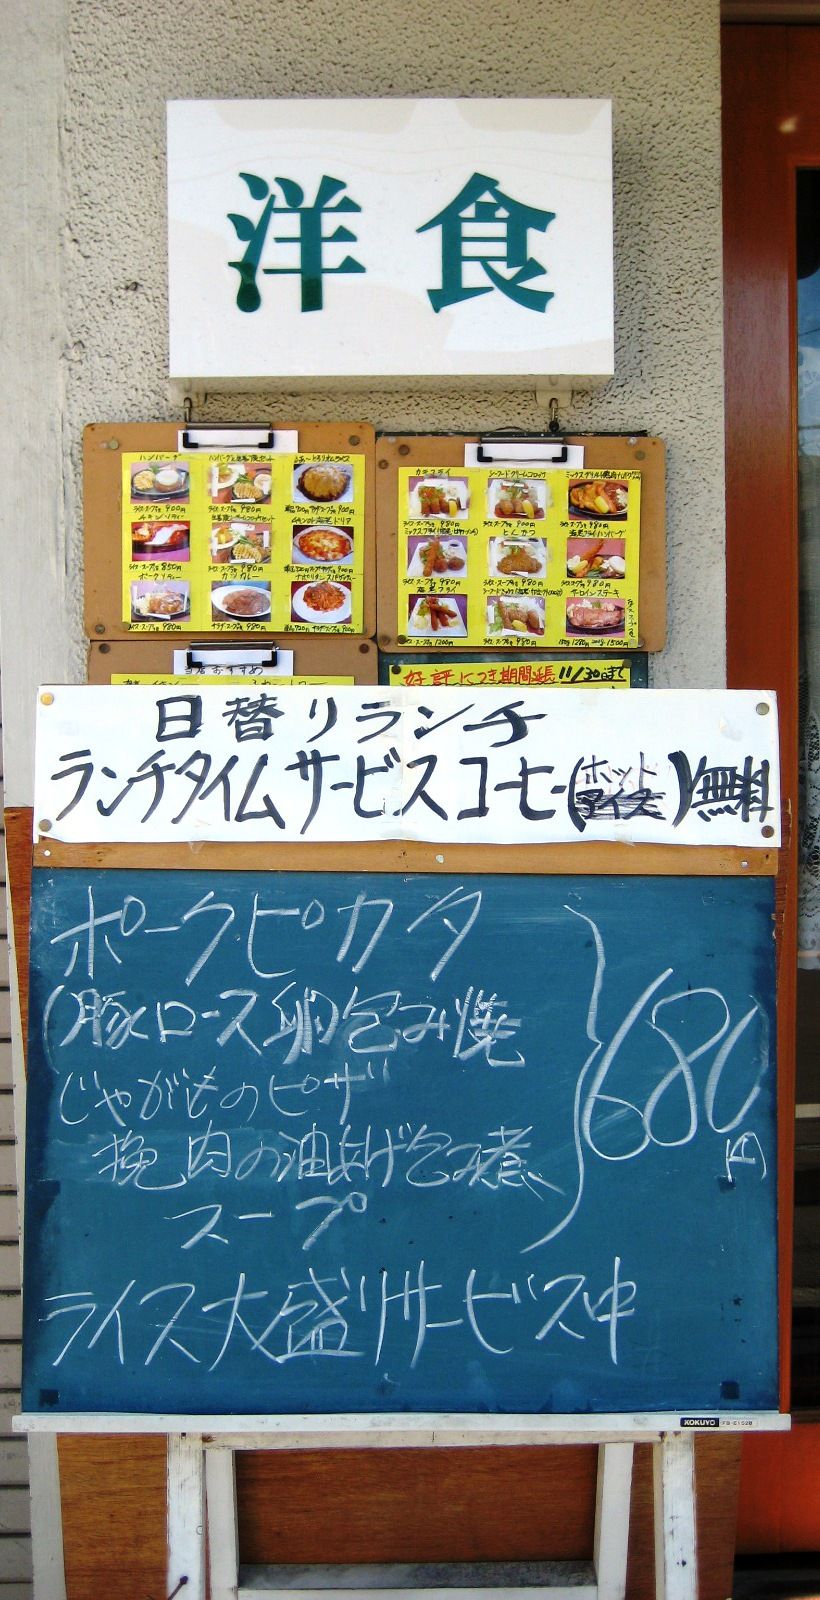 洋食
ハンバーグ
ライス・スープ付 900円
ライス・スープ付 850円
ライス・スープ付 980円
カツカレー
サラダ・スープ付 980円
サラダ・スープ付 900円
カキフライ
ライス・スープ付 980円
シーフードクリームコロッケ
ライス・スープ付 900円
ライス・スープ付 980円
とんかつ
ライス・スープ付 980円
海老フライハンバーグ
ライス・スープ付 980円
海老フライ
ライス・スープ付 1200円
ライス・スープ付 980円
サーロインステーキ
150g 1280円 200g 1500円
当店おすすめ
好評につき期間延長 11/30まで
日替りランチ
ランチタイムサービスコーヒー(ホット アイス)無料
ポークピカタ
(豚ロース卵包み焼
じゃがものピザ
挽肉の油あげ包み煮
スープ
680円
ライス大盛りサービス中
KOKUYO FB-E152B